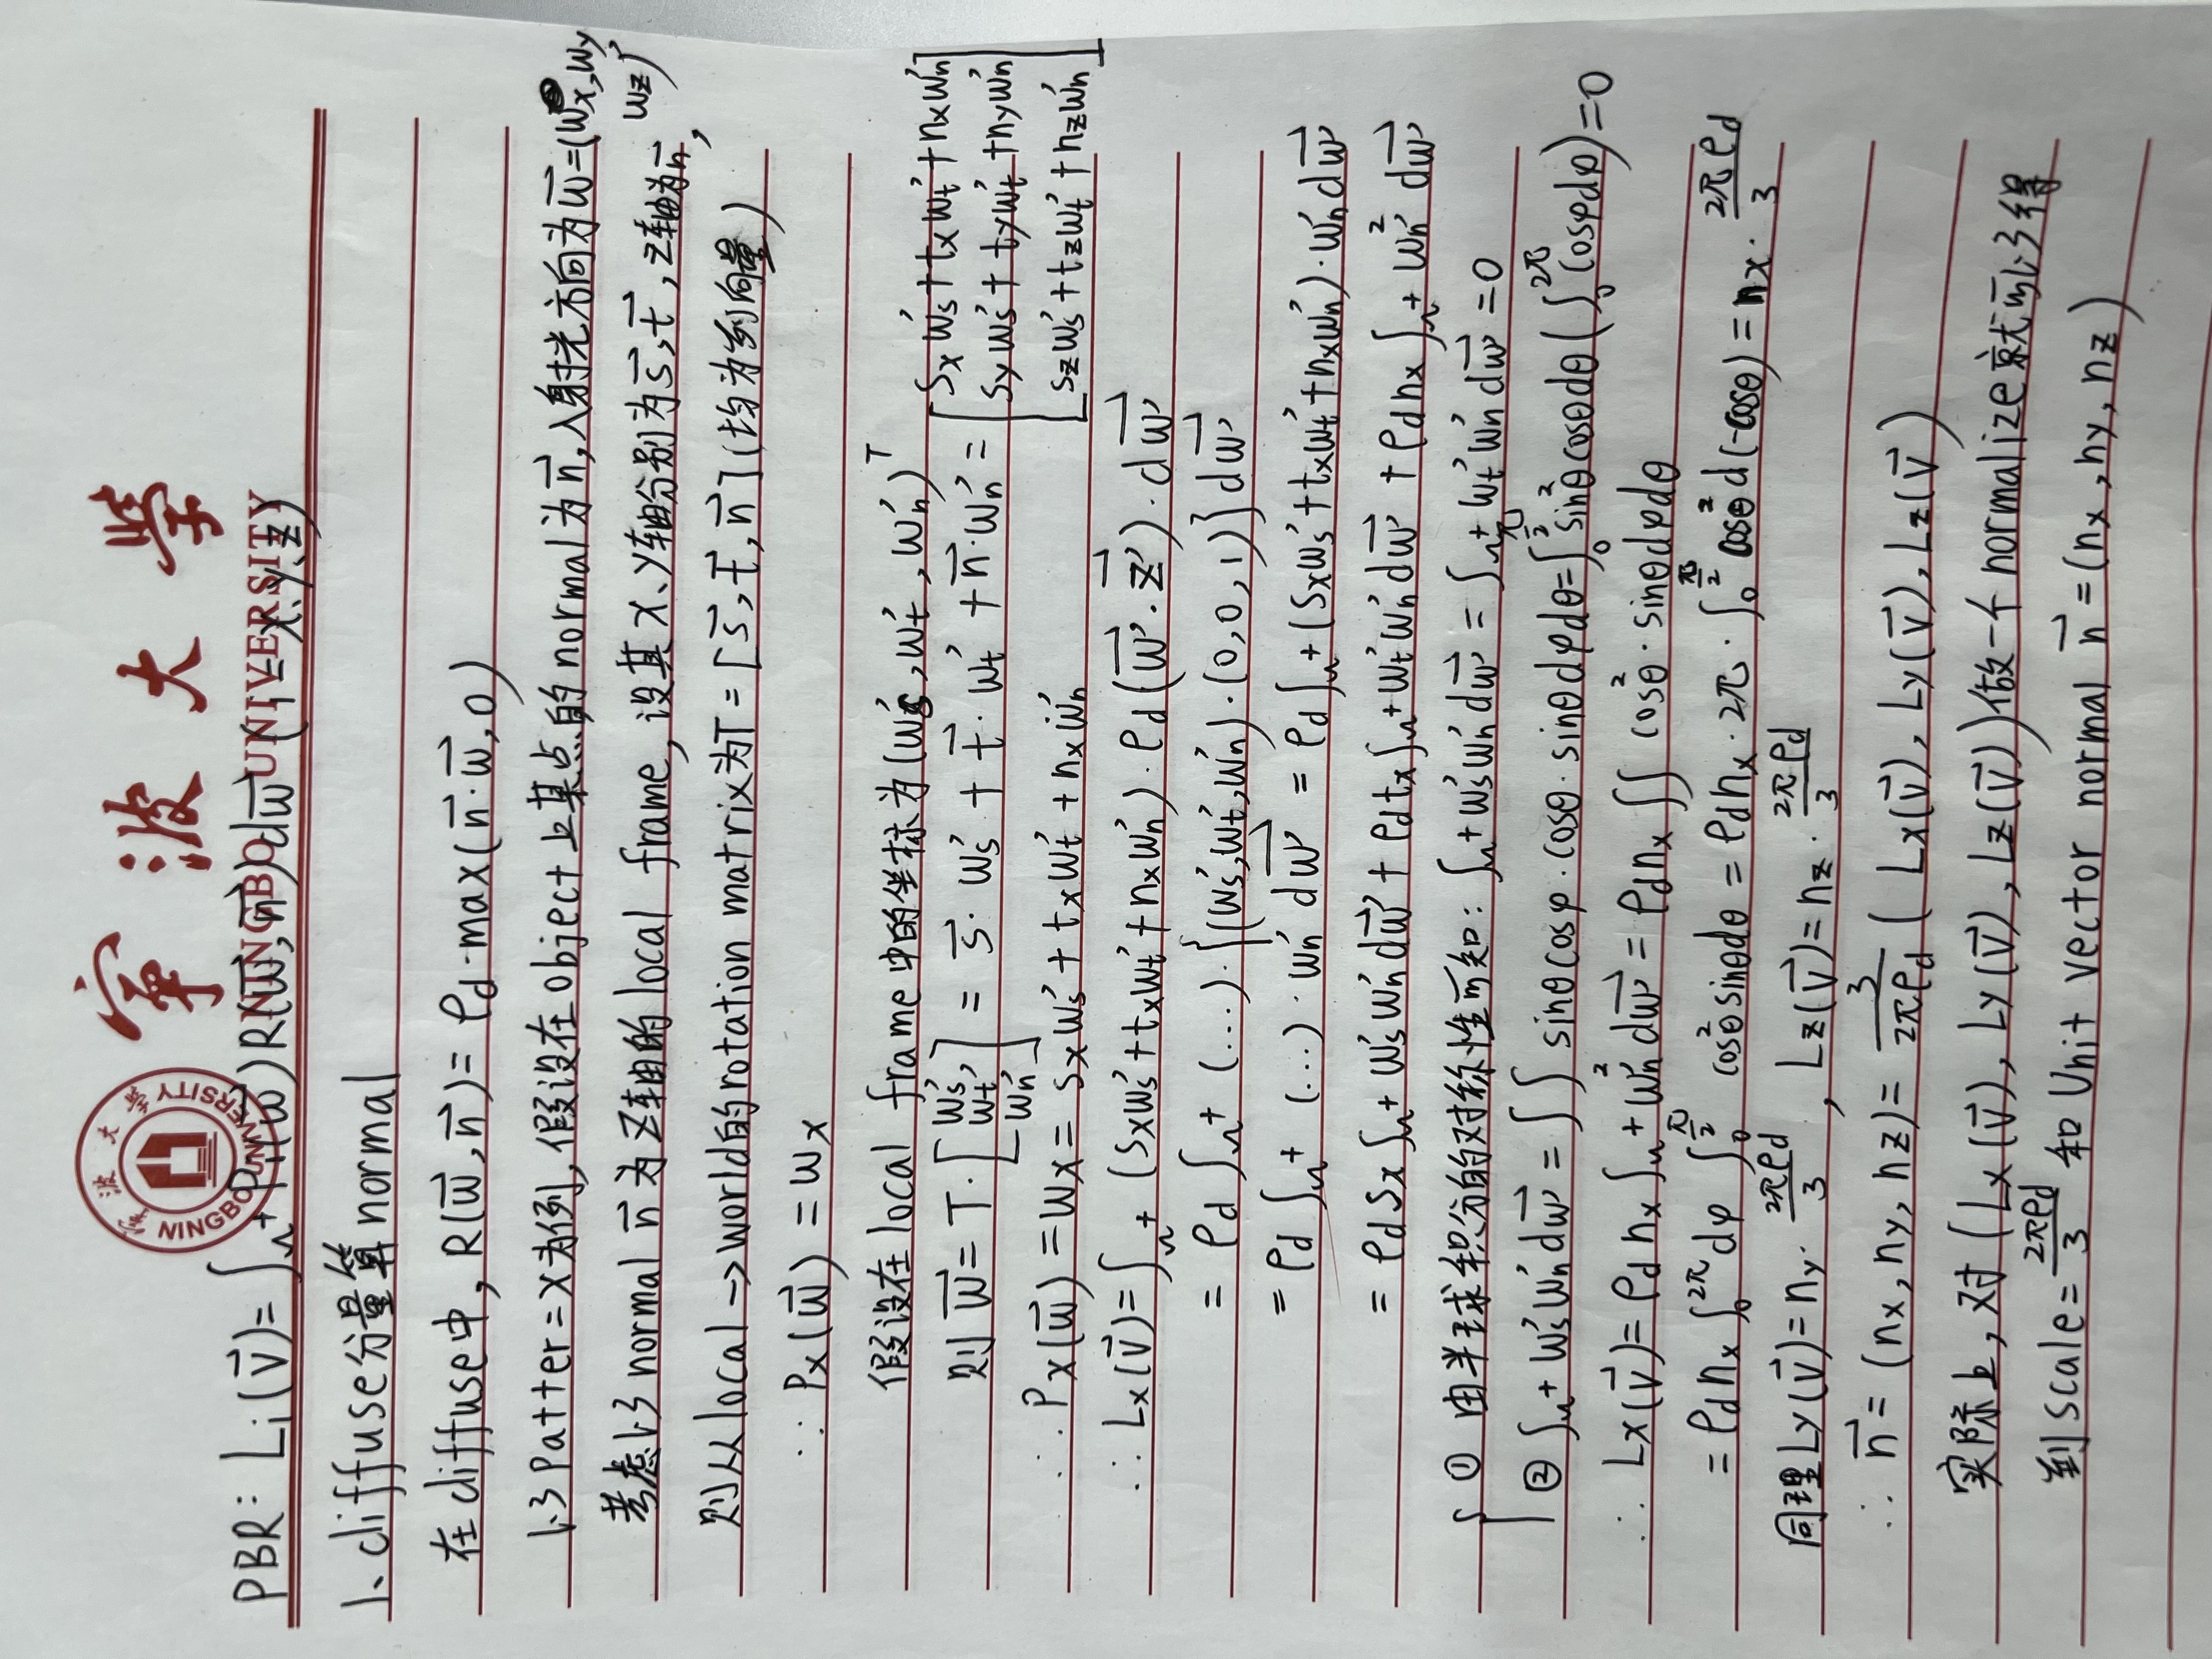 宁波大学
宁波大学
NINGBO UNIVERSITY
NINGBO UNIVERSITY
PBR: Lᵢ(v⃗)=∫Ω+ Pᵢ(w⃗)R(w⃗,n⃗)dw⃗ (i=x、y、z)
1、diffuse分量算normal
在diffuse中, R(w⃗,n⃗)= ρd·max(n⃗·w⃗,0)
以Patter=X为例, 假设在object上某点的normal为n⃗, 入射光方向为w⃗=(wx,wy,
wz)
考虑以normal n⃗为Z轴的local frame, 设其X、Y轴分别为s⃗,t⃗, Z轴为n⃗,
则从local→world的rotation matrix为T=[s⃗,t⃗,n⃗](均为列向量)
∵ Px(w⃗)=wx
假设在local frame中的坐标为(ws',wt',wn')ᵀ
则w⃗=T·[ws', wt', wn']=s⃗·ws'+t⃗·wt'+n⃗·wn'=[sxws'+txwt'+nxwn'
syws'+tywt'+nywn'
szws'+tzwt'+nzwn']
∴ Px(w⃗)=wx=sxws'+txwt'+nxwn'
∴ Lx(v⃗)=∫Ω+ (sxws'+txwt'+nxwn')·ρd(w⃗'·z⃗')·dw⃗'
=ρd∫Ω+ (...)·{(ws',wt',wn')·(0,0,1)}dw⃗'
=ρd∫Ω+ (...)·wn'dw⃗'=ρd∫Ω+(sxws'+txwt'+nxwn')·wn'dw⃗'
=ρdsx∫Ω+ws'wn'dw⃗'+ρdtx∫Ω+wt'wn'dw⃗'+ρdnx∫Ω+wn'²dw⃗'
① 由半球积分的对称性可知: ∫Ω+ws'wn'dw⃗'=∫Ω+wt'wn'dw⃗'=0
② ∫Ω+ws'wn'dw⃗'=∫∫sinθcosφ·cosθ·sinθdφdθ=∫₀^(π/2)sin²θcosθdθ(∫₀^(2π)cosφdφ)=0
∴ Lx(v⃗)=ρdnx∫Ω+wn'²dw⃗'=ρdnx∫∫cos²θ·sinθdφdθ
=ρdnx∫₀^(2π)dφ∫₀^(π/2)cos²θsinθdθ=ρdnx·2π·∫₀^(π/2)cos²θd(-cosθ)=nx·2πρd/3
同理Ly(v⃗)=ny·2πρd/3, Lz(v⃗)=nz·2πρd/3
∴ n⃗=(nx,ny,nz)=3/(2πρd)(Lx(v⃗),Ly(v⃗),Lz(v⃗)
实际上,对(Lx(v⃗),Ly(v⃗),Lz(v⃗))做一个normalize就可以得
到scale=2πρd/3和Unit vector normal n⃗=(nx,ny,nz)